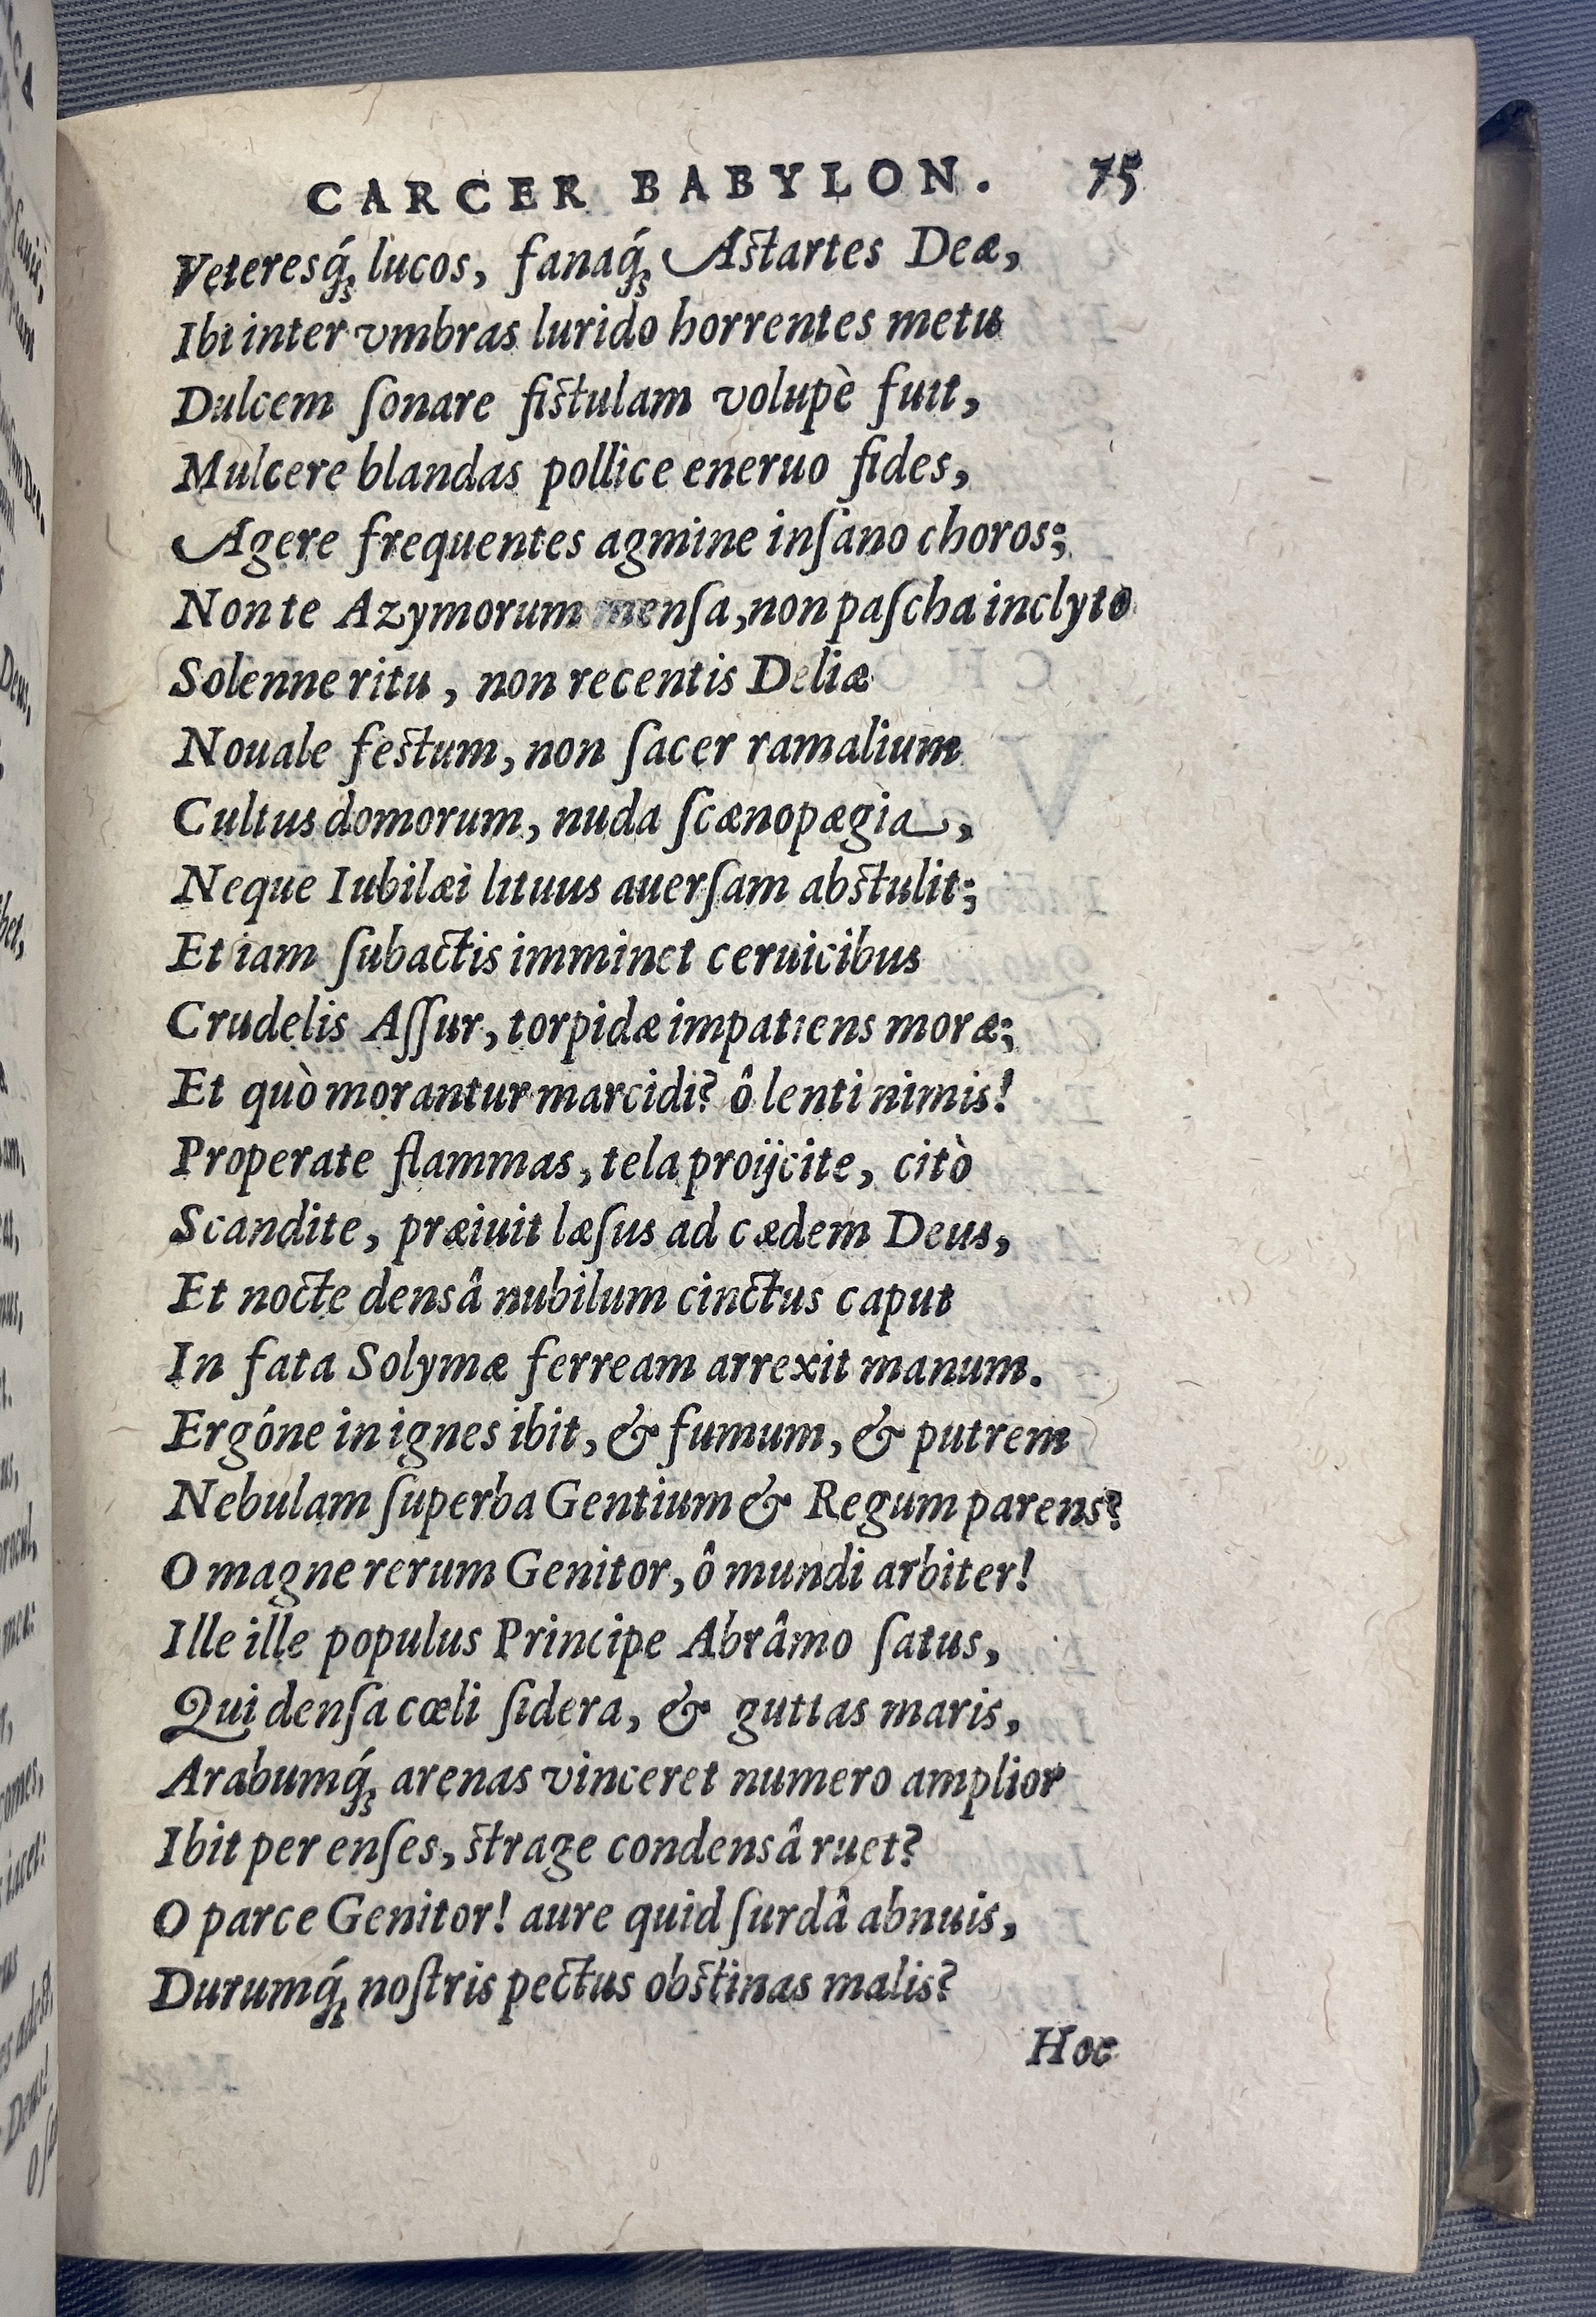 CARCER BABYLON. 75
Veteresq́; lucos, fanaq́; Astartes Deæ,
Ibi inter vmbras lurido horrentes metu
Dulcem ſonare fistulam volupè fuit,
Mulcere blandas pollice eneruo fides,
Agere frequentes agmine inſano choros;
Non te Azymorum menſa, non paſcha inclyto
Solenne ritu, non recentis Deliæ
Nouale festum, non ſacer ramalium
Cultus domorum, nuda ſcænopægia,
Neque Iubilæi lituus auerſam abstulit;
Et iam ſubactis imminet ceruicibus
Crudelis Aſſur, torpidæ impatiens moræ;
Et quò morantur marcidi? ô lenti nimis!
Properate flammas, tela proijcite, citò
Scandite, præiuit læſus ad cædem Deus,
Et nocte densâ nubilum cinctus caput
In fata Solymæ ferream arrexit manum.
Ergóne in ignes ibit, & fumum, & putrem
Nebulam ſuperba Gentium & Regum parens?
O magne rerum Genitor, ô mundi arbiter!
Ille ille populus Principe Abrâmo ſatus,
Qui denſa cœli ſidera, & guttas maris,
Arabumq́; arenas vinceret numero amplior
Ibit per enſes, strage condensâ ruet?
O parce Genitor! aure quid ſurdâ abnuis,
Durumq́; noſtris pectus obstinas malis?
Hoc